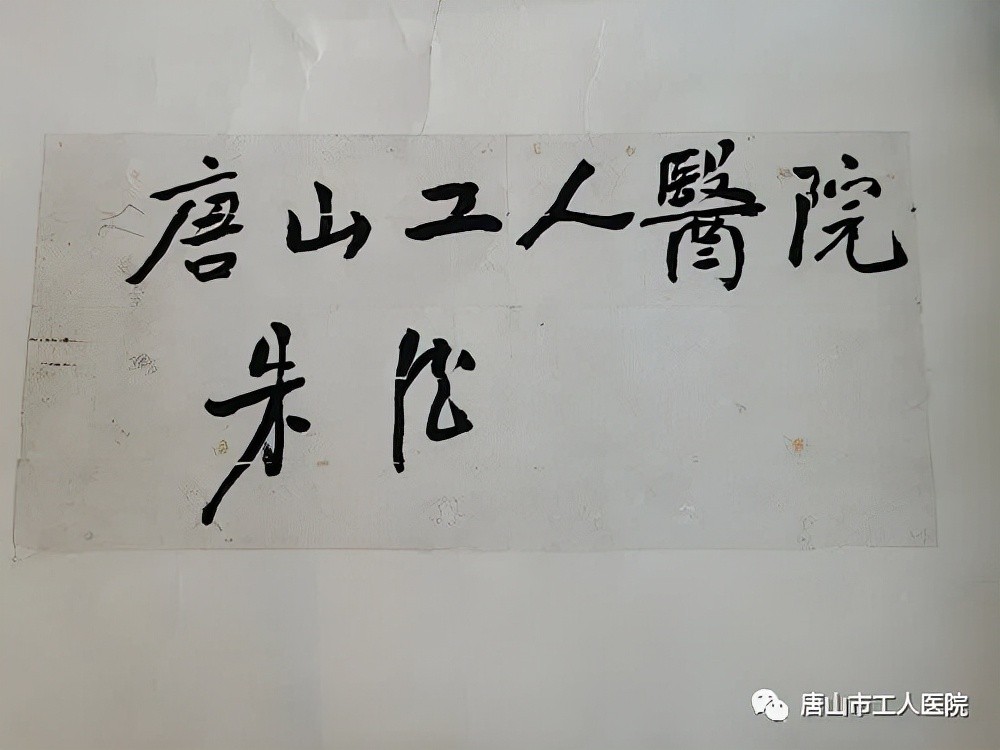 唐山工人醫院
朱德
唐山市工人医院